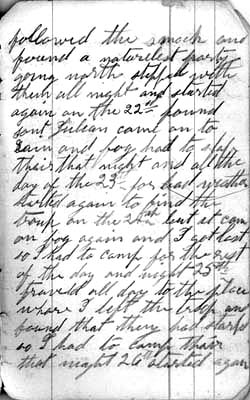 followed the smoak and
found a naturelest party
going north stopped with
them all night and started
again on the 22nd found
font Julian came on to
rain and fog had to stop
thair that night and all the
day of the 23 for bad weather
started again to find the
troup on the 24th but it came
on fog again and I got lost
so I had to camp for the rest
of the day and night 25th
traveld all day to the place
whare I left the troop an
found that they had started
so I had to camp thair
that night 26th started again